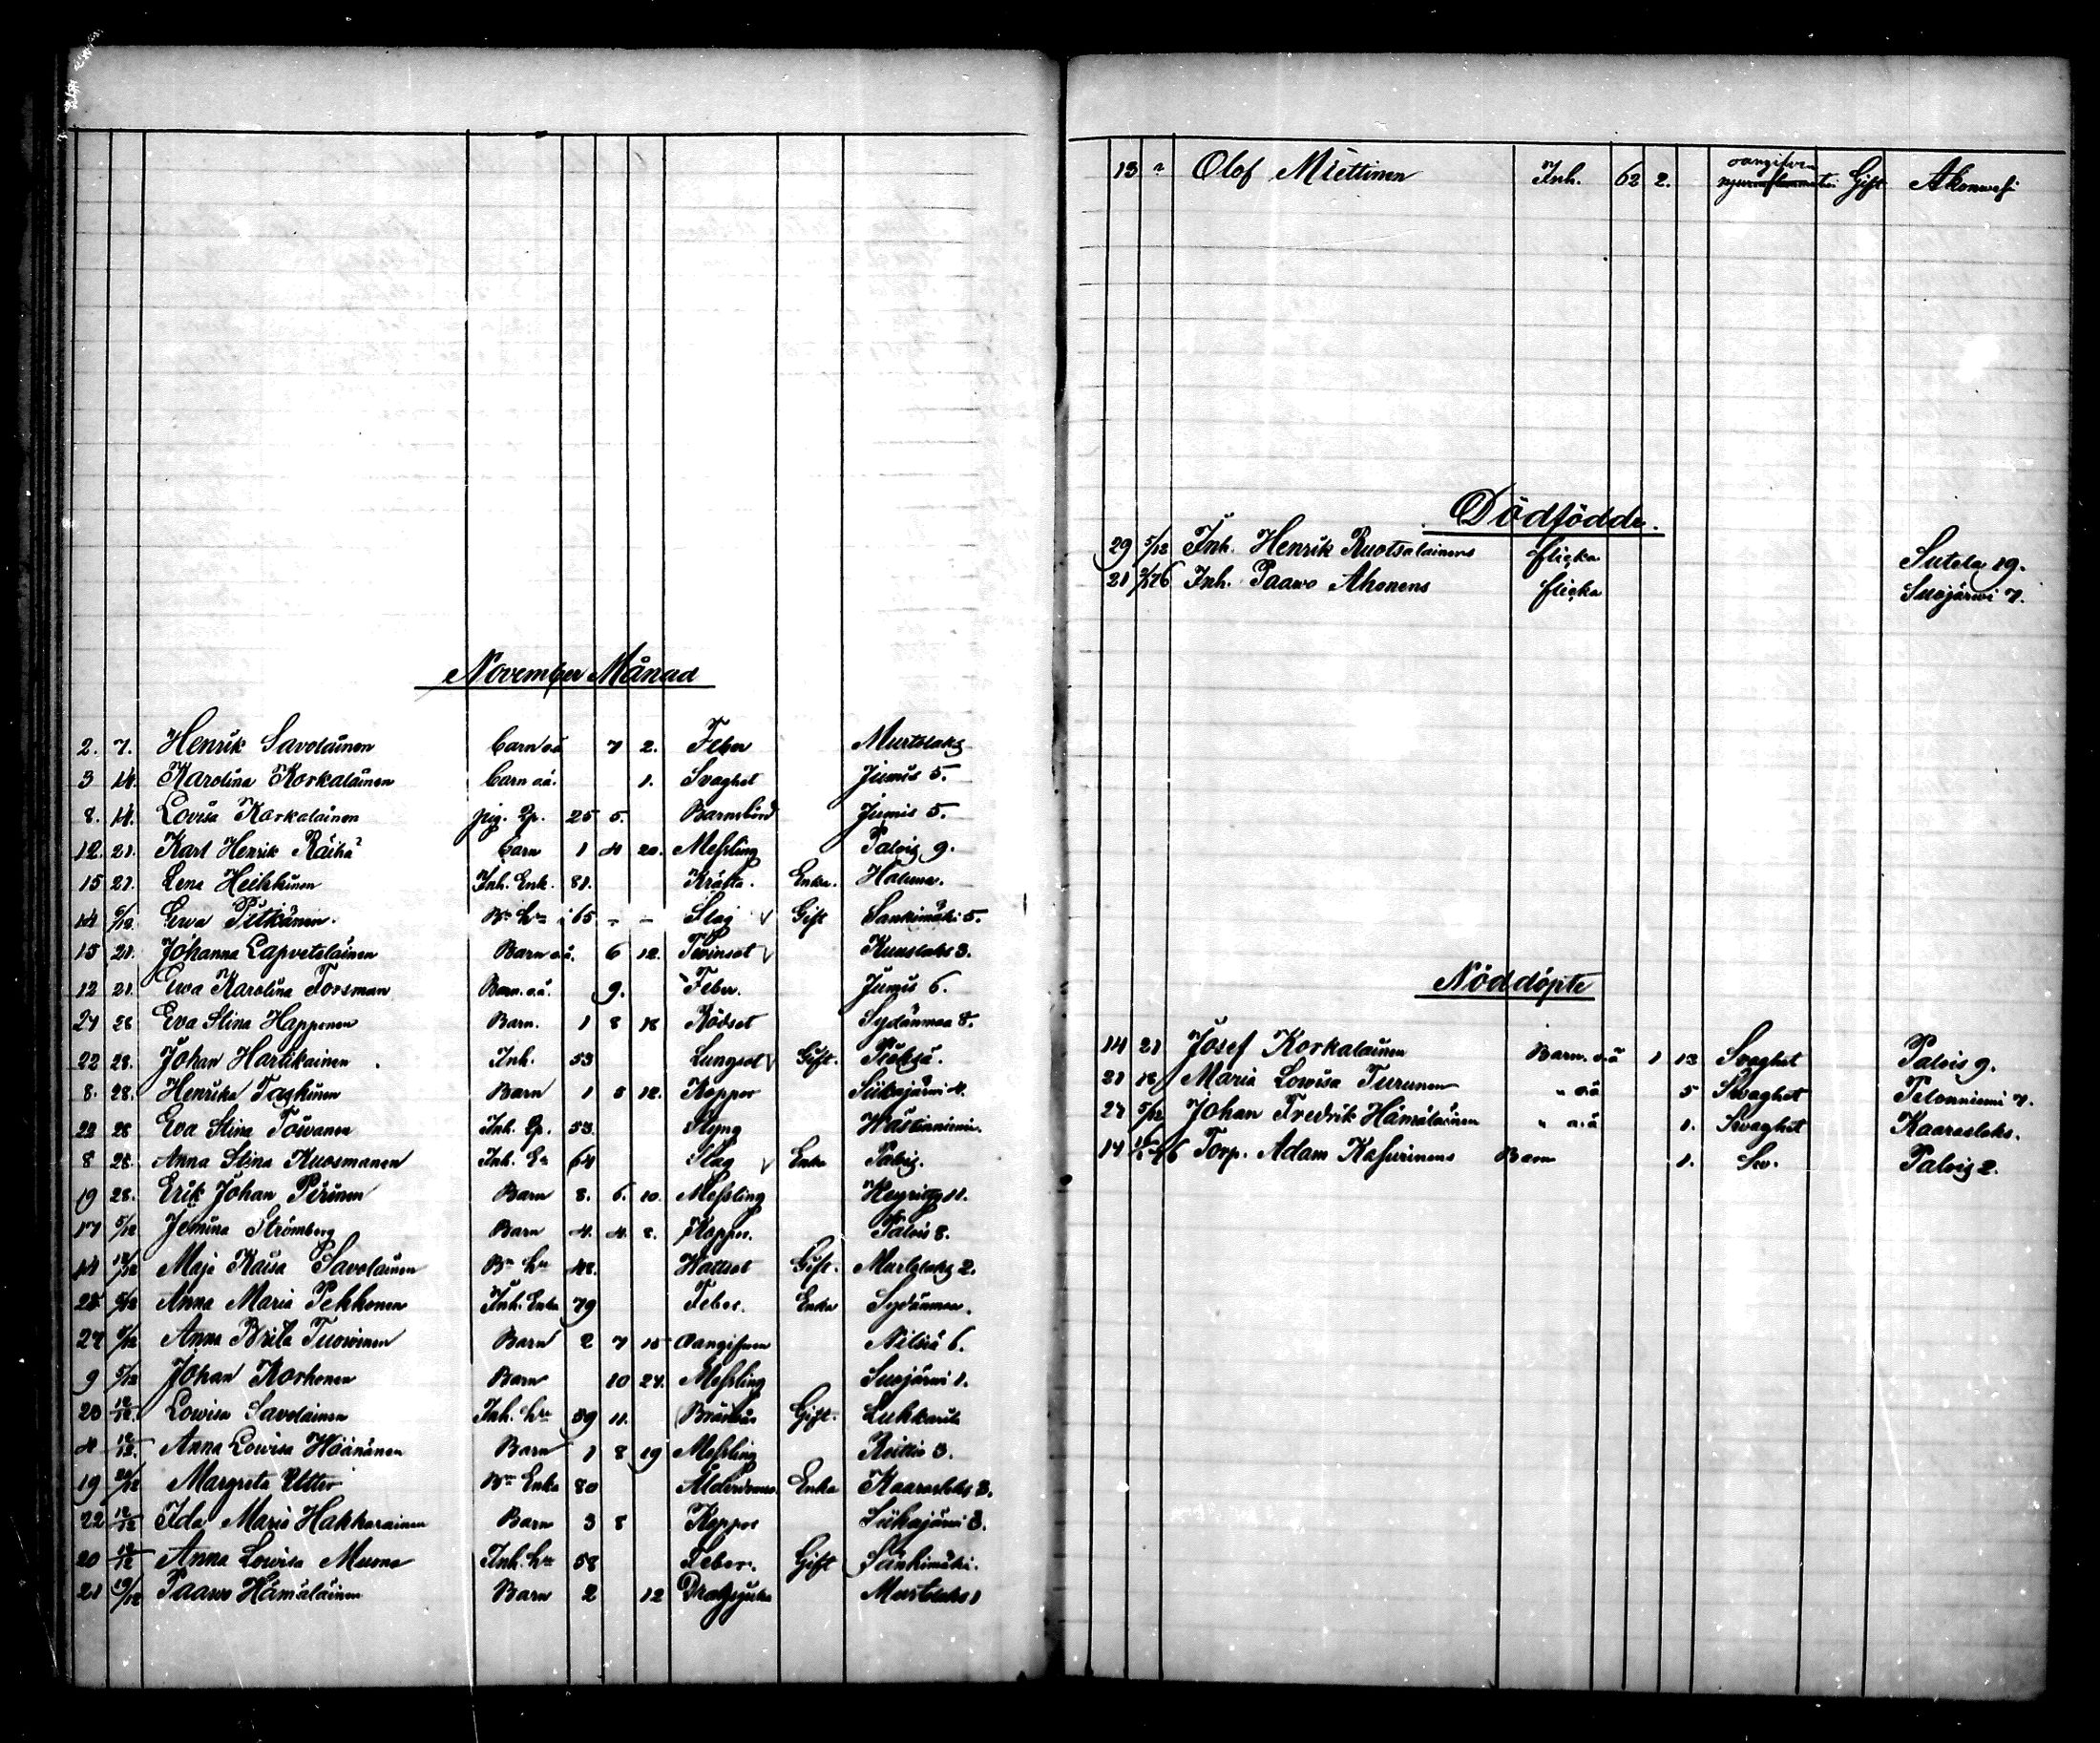 November Månad
2. 7. Henrik Savolainen barn oä 7 2. Feber Murtolaks
3 14. Karolina Korkalainen barn oä. 1. Svaghet Jumis 5.
8. 14. Lovisa Korkalainen pig. 25 5. Barnsbörd Jumis 5.
12. 21. Karl Henrik Räihä barn 1 4 20. Messling Palois 9.
15 21. Lena Heikkinen Inh. Enk. 81. Kräfta. Enka. Haluna.
14 5/12 Ewa Pitkänen. 65 - - Slag Gift Sankimäki 5.
15 21. Johanna Lapvetelainen Barn oä. 6 12. Twinsot Kuuslaks 3.
12 21. Ewa Karolina Forsman Barn. oä. 9. Feber. Jumis 6.
27 28 Eva Stina Happonen Barn. 1 8 18 Rödsot Sydänmaa 8.
22 28. Johan Hartikainen Inh. 53 Lungsot Gift.
8. 28. Henrika Taskinen Barn 1 12. Koppor Siikajärvi 4.
22 28 Eva Stina Towanen Inh. 53. Styng Wästinniemi.
8 28. Anna Stina Kuosmanen Inh. 64 Slag Enka Palois.
19 28. Erik Johan Pirinen Barn 8. 6. 10. Messling 11.
17 5/12 Jemina Strömberg Barn 4. 4. 8. Koppor. Palois 8.
14 12/12 Maja Kaisa Savolainen 48. Wattsot Gift. Murtolaks 2.
28 5/12 Anna Maria Pekkonen Inh. Enka 79 Feber. Enka Sydänmaa.
27 5/12 Anna Brita Tuovinen Barn 2 7 15 Oangifven Nilsiä 6.
9 5/12 Johan Korhonen Barn 10 27. Messling Suojärvi 1.
20 12/12. Lowisa Savolainen Inh. 39 11. Gift. Lukkarila
4 12/12. Anna Lowisa Wäänänen Barn 1 8 19 Messling Reittiö 3.
19 Margreta Utter Enka 80 Ålderdoms Enka Kaaraslaks 3.
22 12/12 Ida Maria Hakkarainen Barn 3 8 Koppor Siikajärvi 3.
20 12/12 Anna Lowisa Muona Inh. 58 Feber. Gift Sänkimäki.
21 19/12 Paavo Hämäläinen Barn 2 12 Dragsjuka Murtolaks 1
13 " Olof Miettinen Inh. 62 2. oangifven Gift Akonvesi
Dödfödde.
29 5/12 Inh. Henrik Ruotsalainens flicka Sutela 19.
21 Inh. Paavo Ahonens flicka Suojärvi 7.
Nöddöpte
14 21 Josef Korkalainen Barn. oä 1 13 Svaghet Palois 9.
21 Maria Lowisa Turunen " oä 5 Svaghet Pelonniemi 7.
27 5/12 Johan Fredrik Hämäläinen " oä 1. Svaghet Kaaraslaks.
14 Torp. Adam Kasurinens Barn 1. Sv. Palois 2.